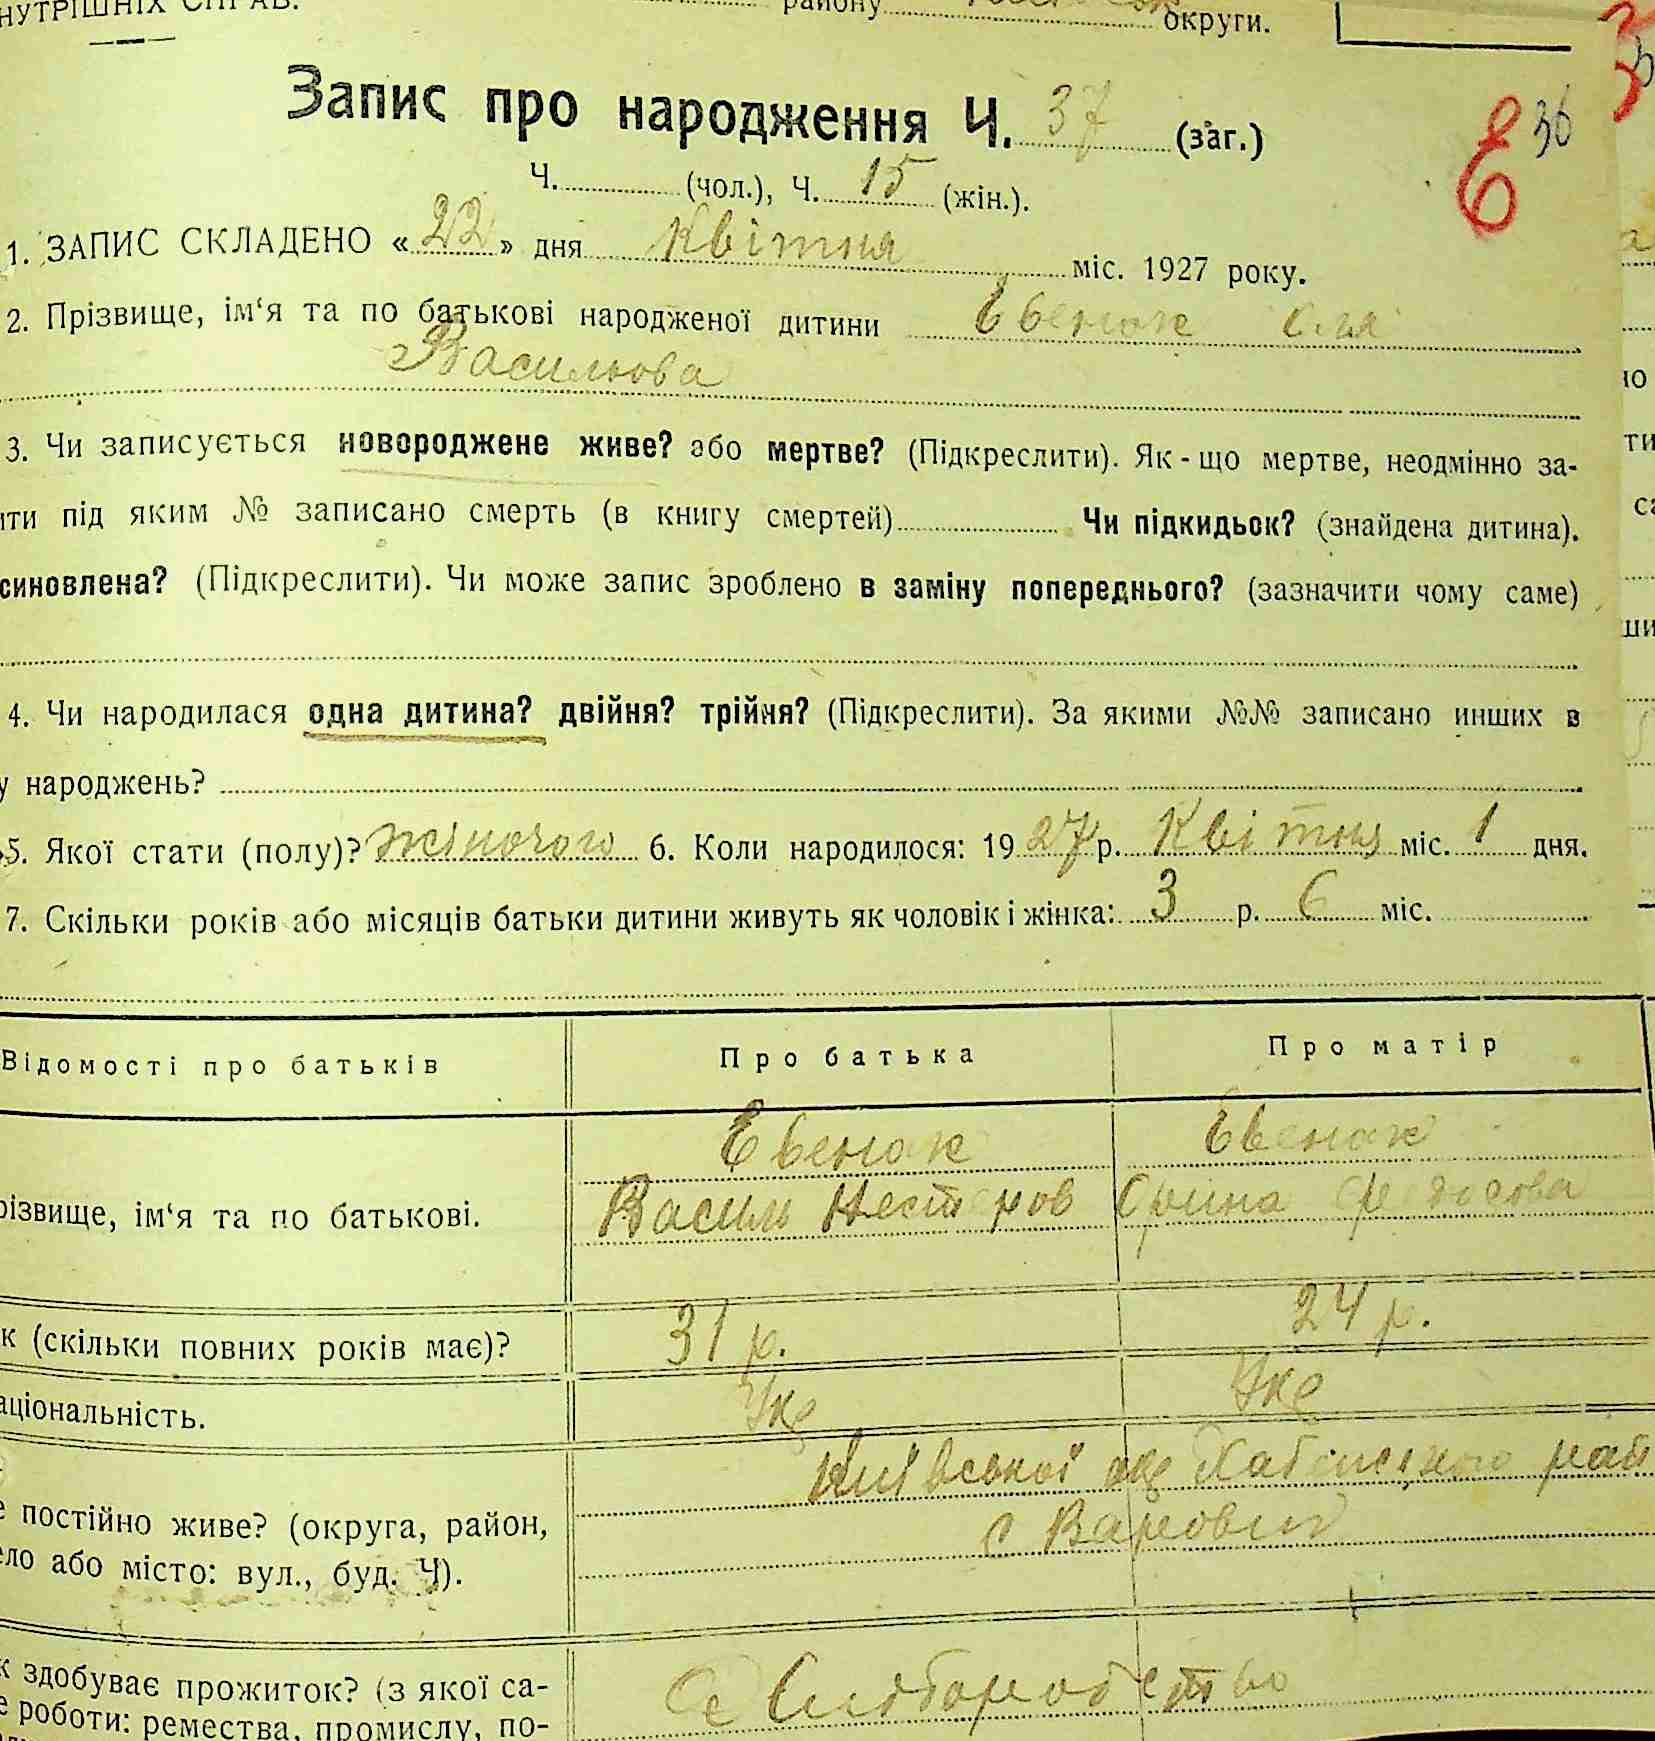 НУТРІШНІХ СПРАВ.
району округи.
Запис про народження Ч. 37 (заг.)
36
Ч. (чол.), Ч. 15 (жін.).
1. ЗАПИС СКЛАДЕНО «22» дня Квітня міс. 1927 року.
2. Прізвище, ім‘я та по батькові народженої дитини Евенок Оля
Васильова
3. Чи записується новороджене живе? або мертве? (Підкреслити). Як-що мертве, неодмінно за-
ити під яким № записано смерть (в книгу смертей) Чи підкидьок? (знайдена дитина).
синовлена? (Підкреслити). Чи може запис зроблено в заміну попереднього? (зазначити чому саме)
4. Чи народилася одна дитина? двійня? трійня? (Підкреслити). За якими №№ записано инших в
у народжень?
5. Якої стати (полу)? жіночого 6. Коли народилося: 1927 р. Квітня міс. 1 дня.
7. Скільки років або місяців батьки дитини живуть як чоловік і жінка: 3 р. 6 міс.
Відомості про батьків Про батька Про матір
Евенок Евенок
різвище, ім‘я та по батькові. Василь Нестеров
к (скільки повних років має)? 31 р. 24 р.
аціональність. Укр Укр
Київської окр Хабенського рай
е постійно живе? (округа, район, с Варовск
ело або місто: вул., буд. Ч).
к здобуває прожиток? (з якої са-
е роботи: ремества, промислу, по-